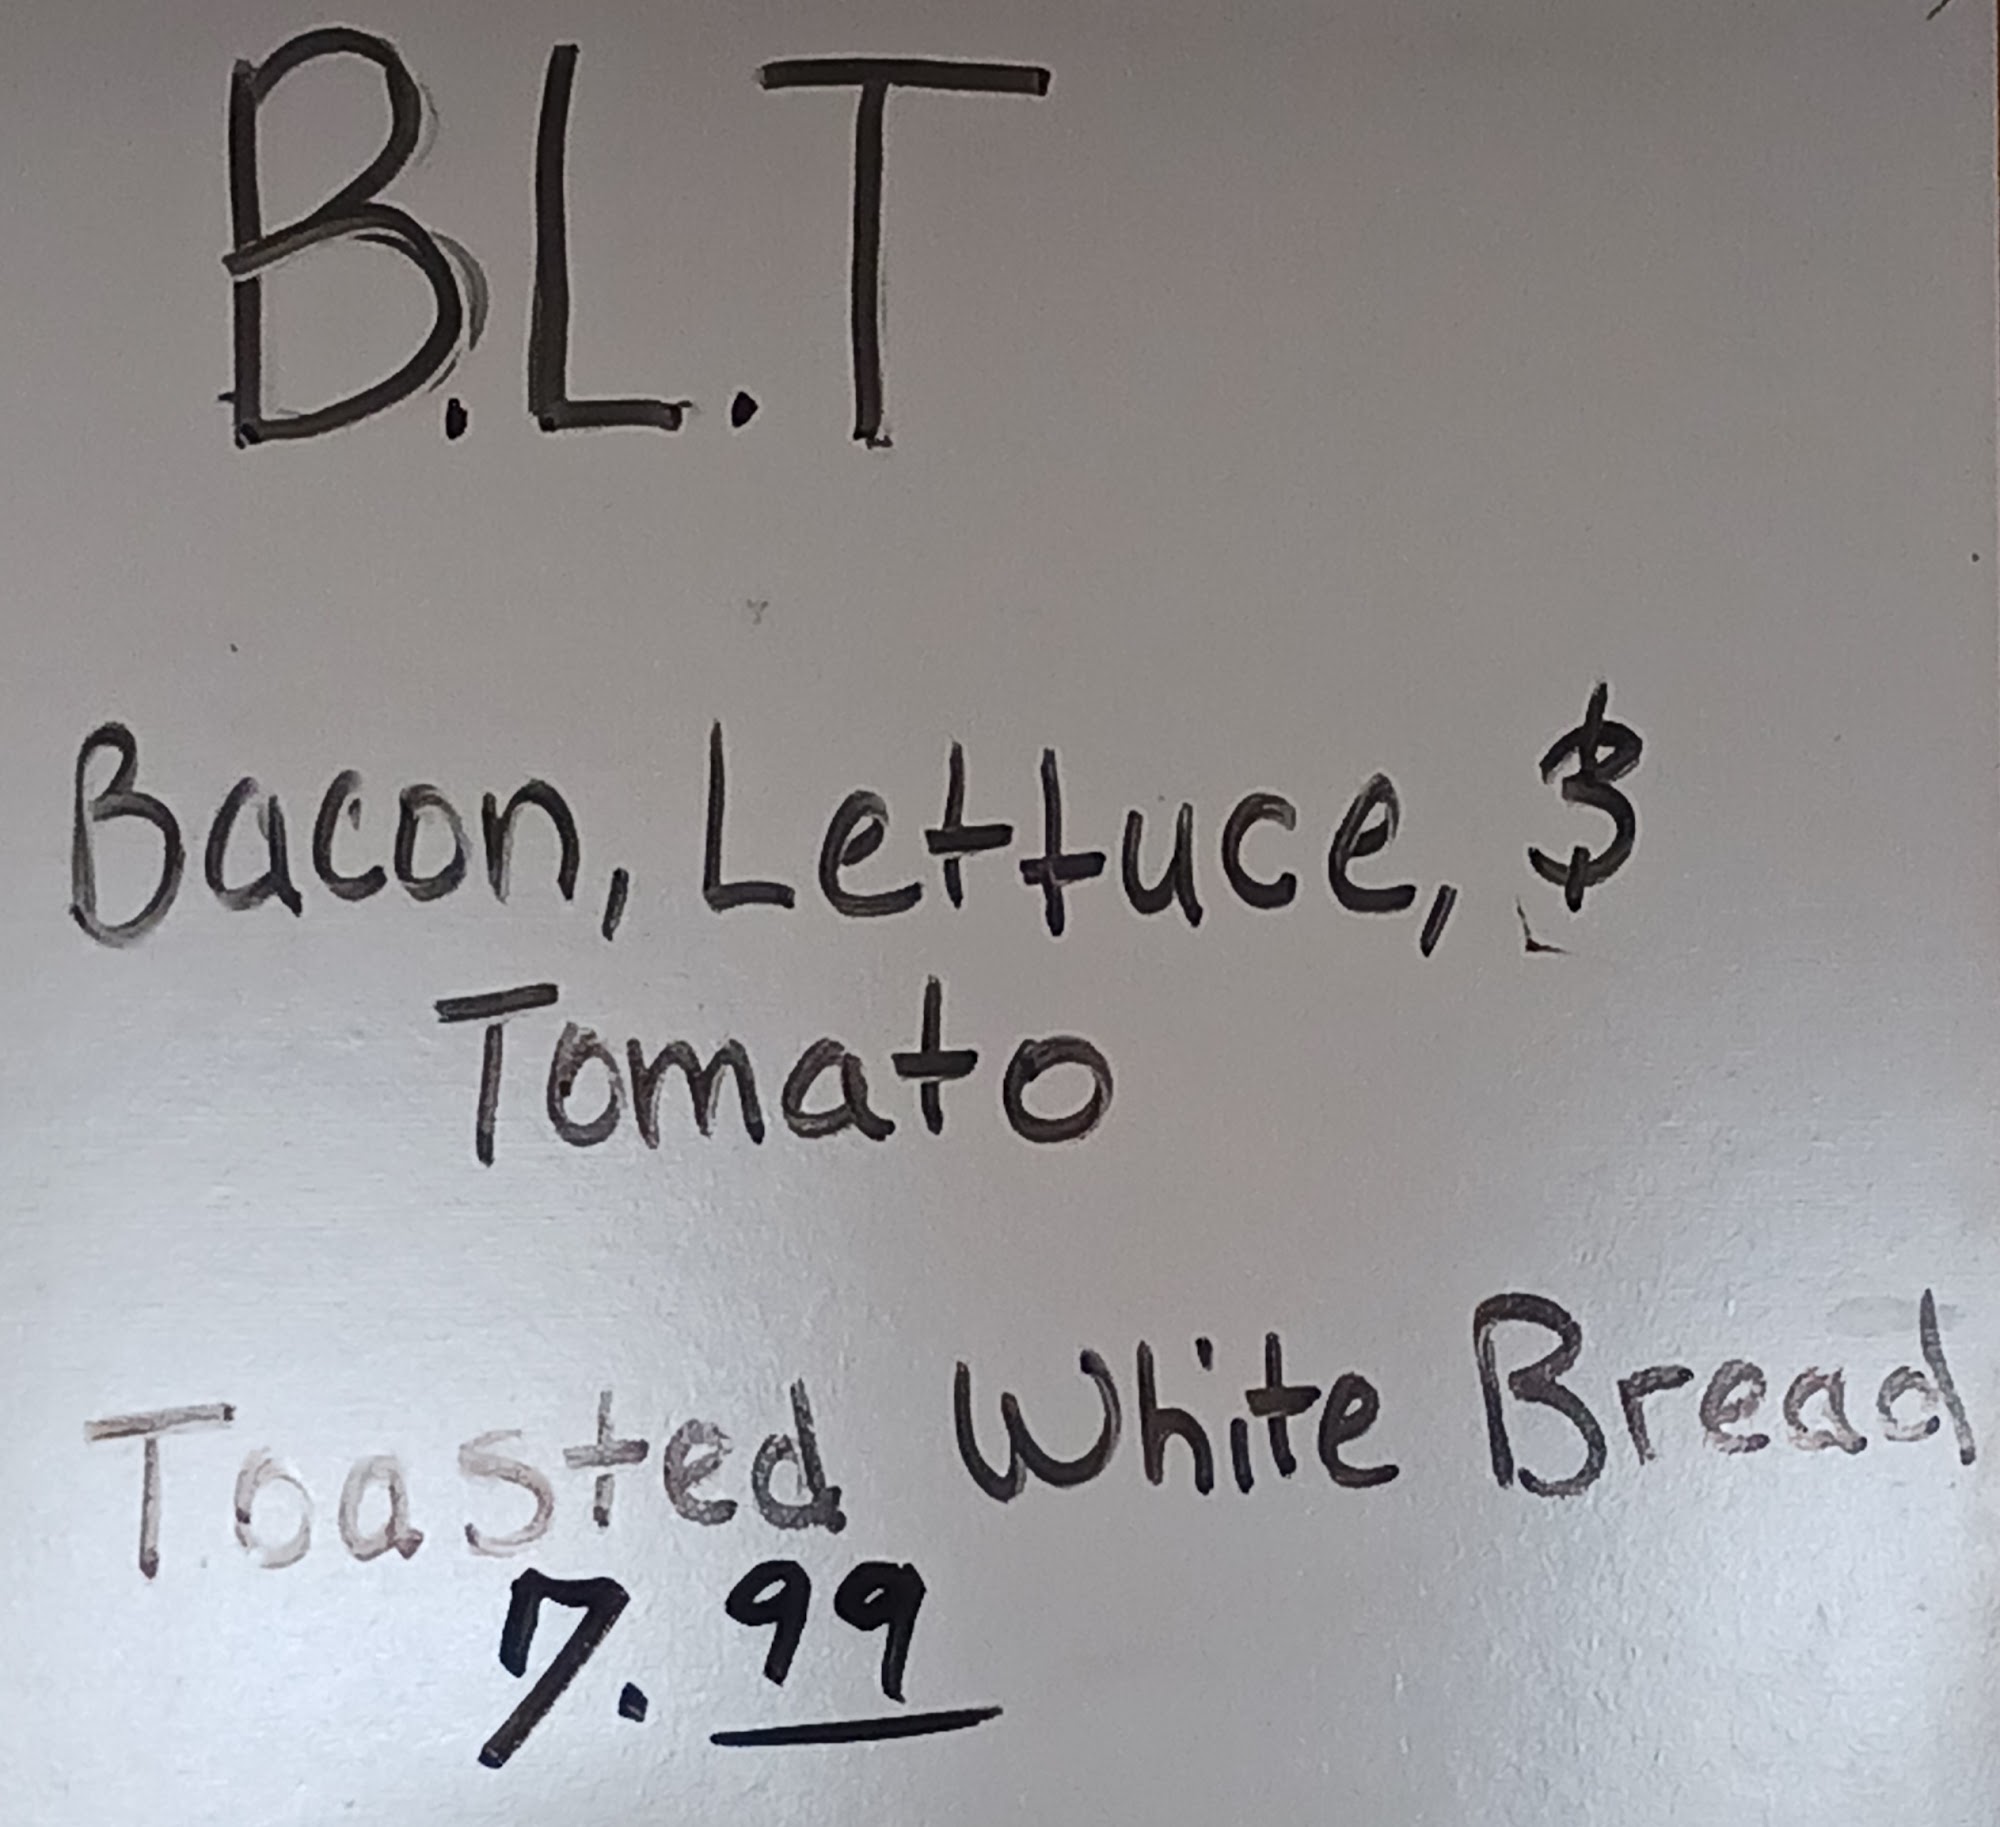 B.L.T
Bacon, Lettuce, &
Tomato
Toasted White Bread
7.99